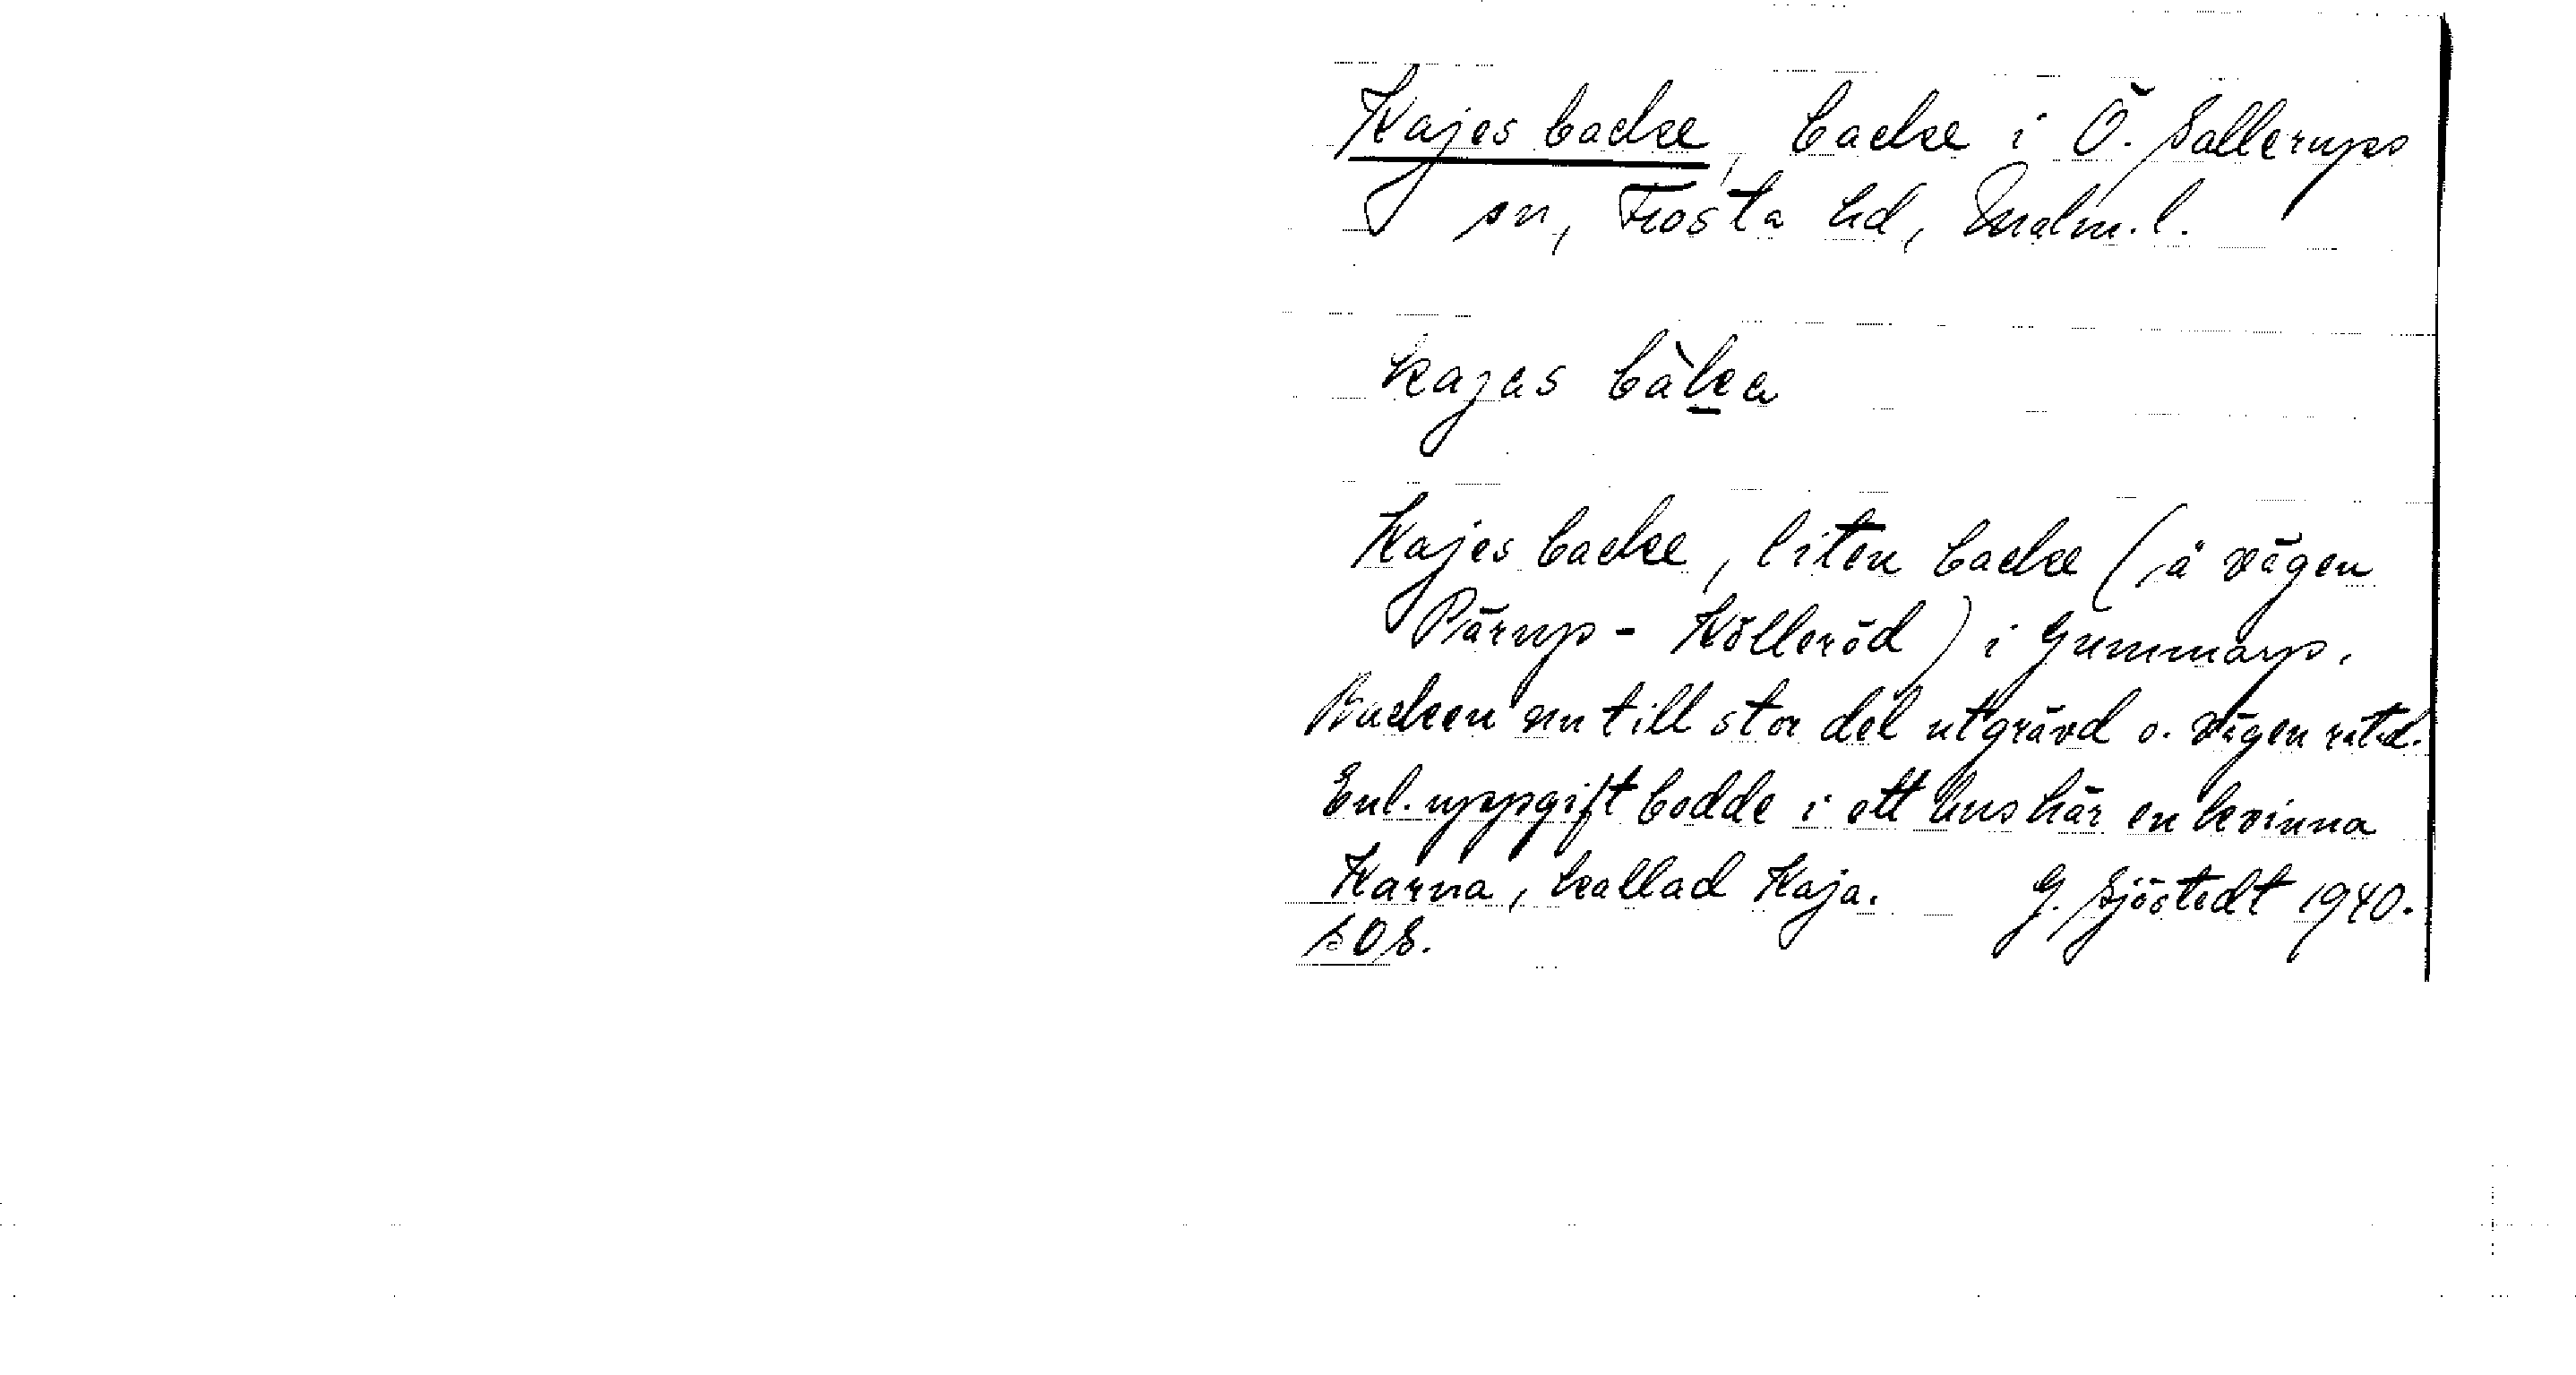 Kajes backe, backe i Ö. Sallerups
sn, Frosta hd, Malm. l.
kajas bàka
Kajes backe, liten backe (å vägen
Pärup - Kölleröd) i Gummarp.
Backen nu till stor del utgrävd o. vägen rätad.
Enl. uppgift bodde i ett hus här en kvinna
Karna, kallad Kaja. G. Sjöstedt 1940.
SOS.